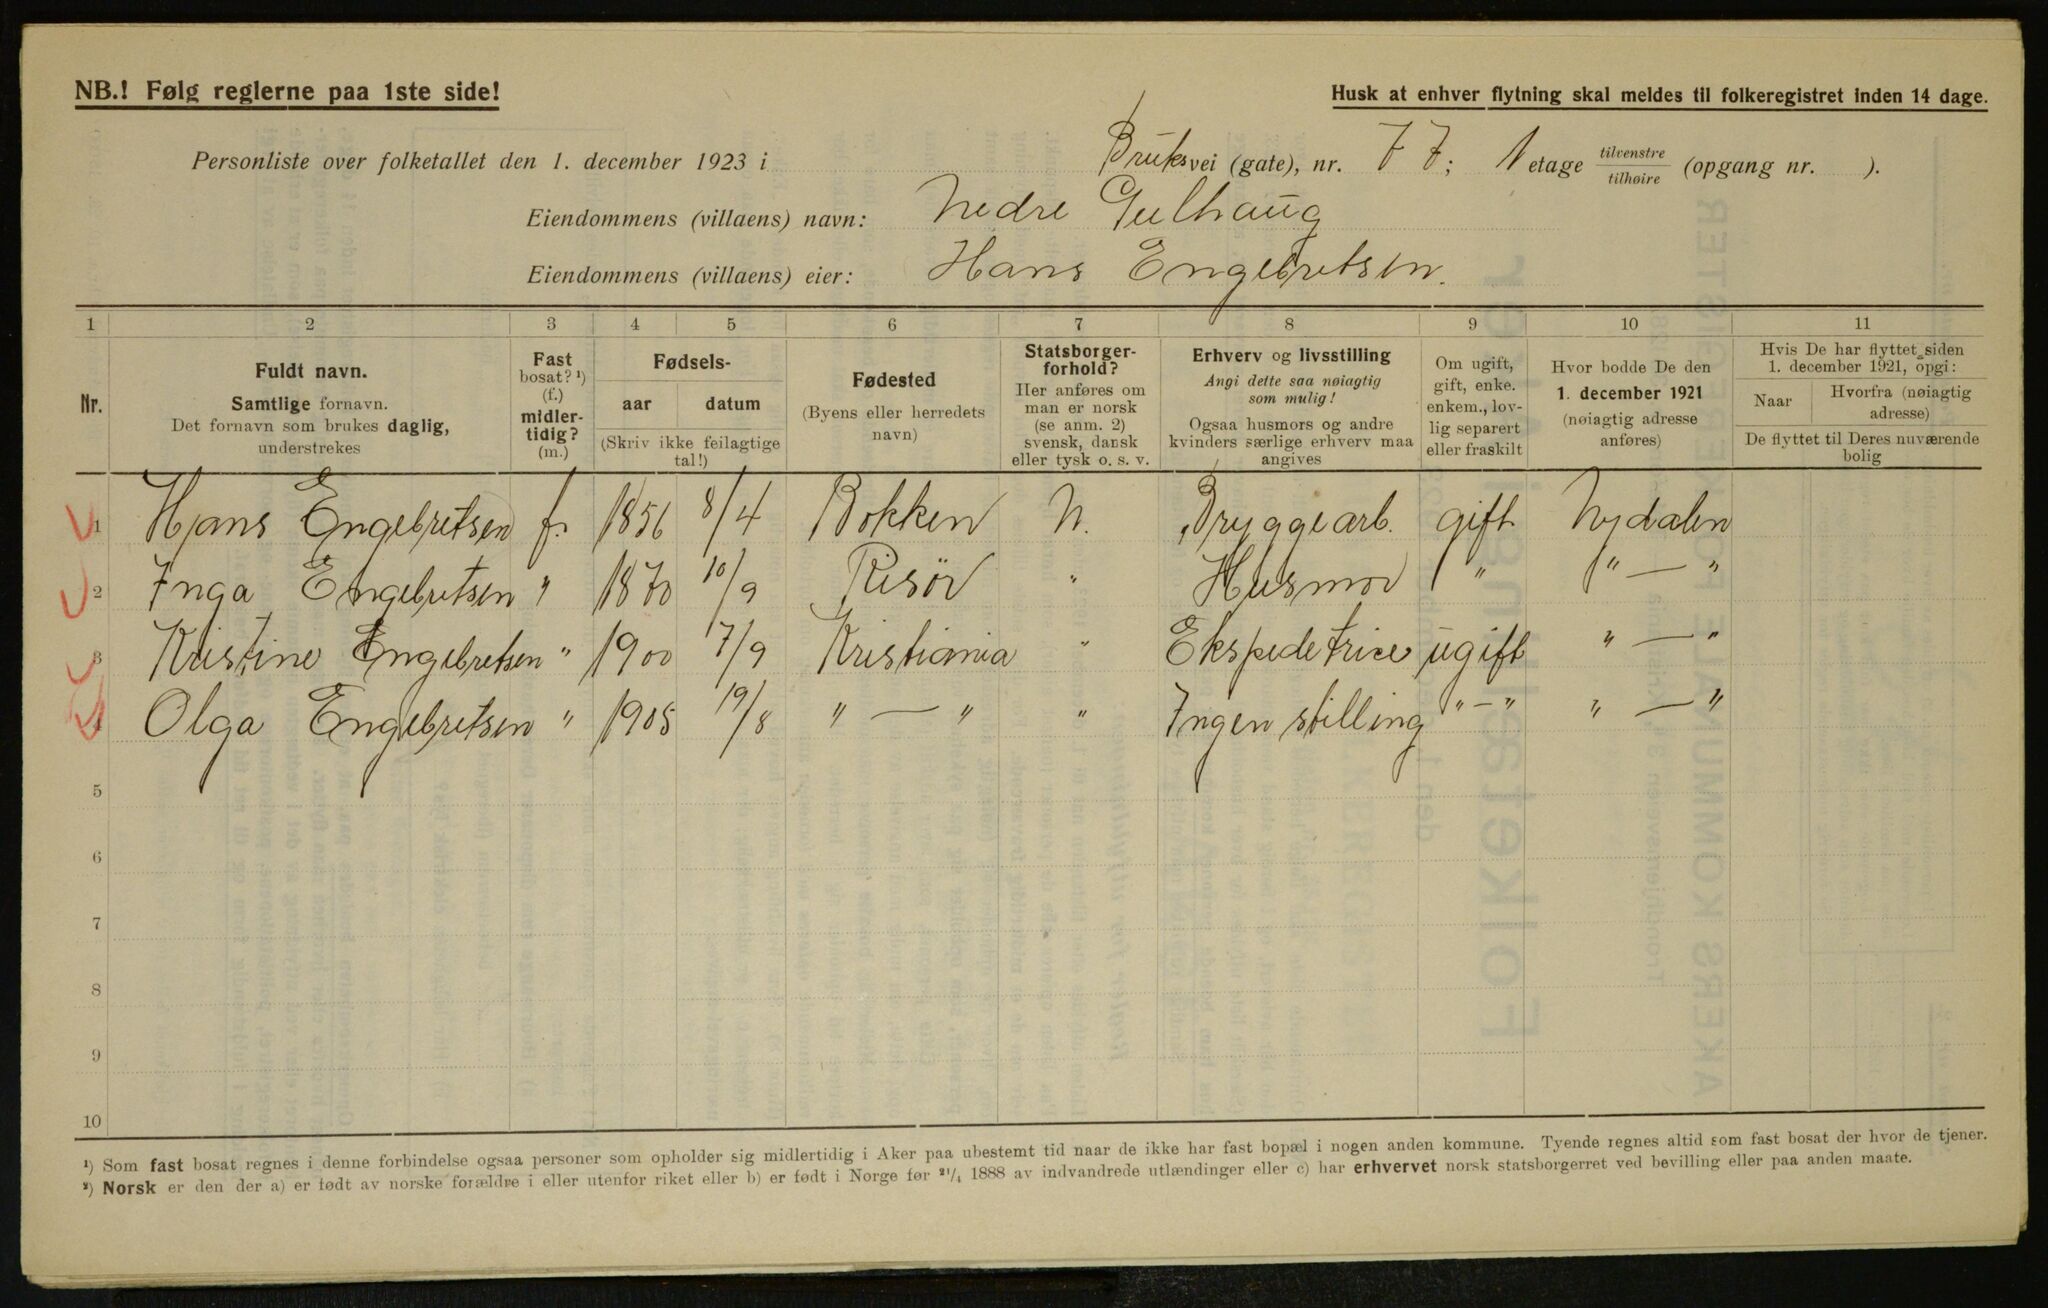 NB.! Følg reglerne paa 1ste side!
Husk at enhver flytning skal meldes til folkeregistret inden 14 dage.
Personliste over folketallet den 1. december 1923 i Bruksvei (gate), nr. 77; 1 etage tilvenstre/tilhøire (opgang nr. ).
Eiendommens (villaens) navn: Nedre Gulhaug
Eiendommens (villaens) eier: Hans Engebretsen.
1 2 3 4 5 6 7 8 9 10 11
Nr.
Fuldt navn.
Samtlige fornavn.
Det fornavn som brukes daglig,
understrekes
Fast
bosat? ¹)
(f.)
midler-
tidig?
(m.)
Fødsels-
aar datum
(Skriv ikke feilagtige
tal!)
Fødested
(Byens eller herredets
navn)
Statsborger-
forhold?
Her anføres om
man er norsk
(se anm. 2)
svensk, dansk
eller tysk o. s. v.
Erhverv og livsstilling
Angi dette saa nøiagtig
som mulig!
Ogsaa husmors og andre
kvinders særlige erhverv maa
angives
Om ugift,
gift, enke.
enkem., lov-
lig separert
eller fraskilt
Hvor bodde De den
1. december 1921
(nøiagtig adresse
anføres)
Hvis De har flyttet siden
1. december 1921, opgi:
Naar
Hvorfra (nøiagtig
adresse)
De flyttet til Deres nuværende
bolig
1 Hans Engebretsen f. 1856 8/4 Bokken N. Bryggearb. gift Nydalen
2 Inga Engebretsen " 1870 10/9 Risör " Husmor " " — "
3 Kristine Engebretsen " 1900 7/9 Kristiania " Ekspedetrice ugift " — "
4 Olga Engebretsen " 1905 19/8 " — " " Ingen stilling " — " " — "
5
6
7
8
9
10
¹) Som fast bosat regnes i denne forbindelse ogsaa personer som opholder sig midlertidig i Aker paa ubestemt tid naar de ikke har fast bopæl i nogen anden kommune. Tyende regnes altid som fast bosat der hvor de tjener.
²) Norsk er den der a) er født av norske forældre i eller utenfor riket eller b) er født i Norge før ²¹/₄ 1888 av indvandrede utlændinger eller c) har erhvervet norsk statsborgerret ved bevilling eller paa anden maate.